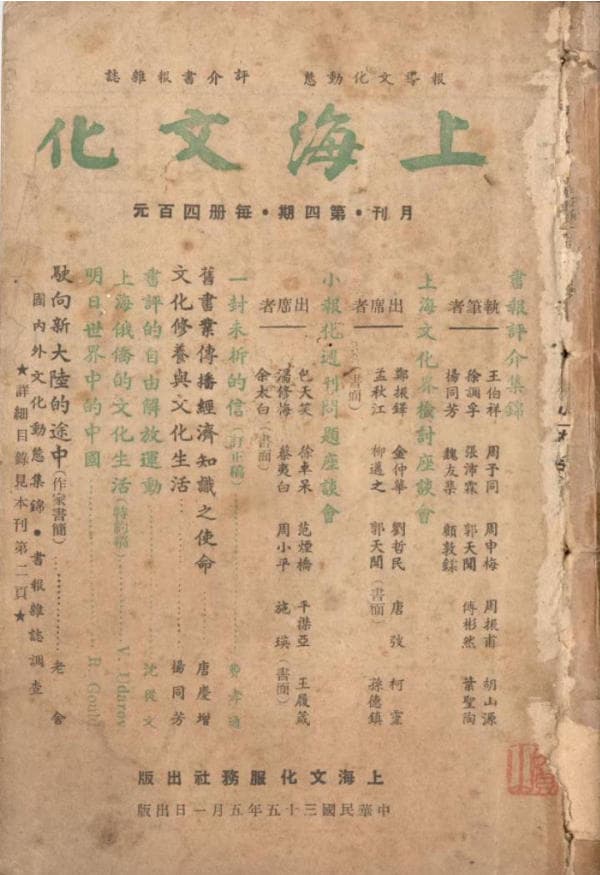 報導文化動態　評介書報雜誌
上海文化
月刊・第四期・每册四百元
書報評介集錦
執筆者
王伯祥　周予同　周申梅　周振甫　胡山源
徐調孚　張沛霖　郭天聞　傅彬然　葉聖陶
楊同芳　魏友棐　顧敦鍒
上海文化界檢討座談會
出席者
鄭振鐸　金仲華　劉哲民　唐弢　柯靈
孟秋江　柳適之　郭天聞（書面）　孫德鎮（書面）
小報化週刊問題座談會
出席者
包天笑　徐卓呆　范煙橋　平襟亞　王履箴
湯修梅　蔡夷白　周小平　施瑛（書面）
余太白（書面）
一封未拆的信（訂正稿）費孝通
舊書業傳播經濟知識之使命　唐慶增
文化修養與文化生活　楊同芳
書評的自由解放運動　沈從文
上海俄僑的文化生活（特約稿）V. Udarov
明日世界中的中國　R. Gould
駛向新大陸的途中（作家書簡）老舍
國內外文化動態集錦・書報雜誌調查
★詳細目錄見本刊第二頁★
上海文化服務社出版
中華民國三十五年五月一日出版